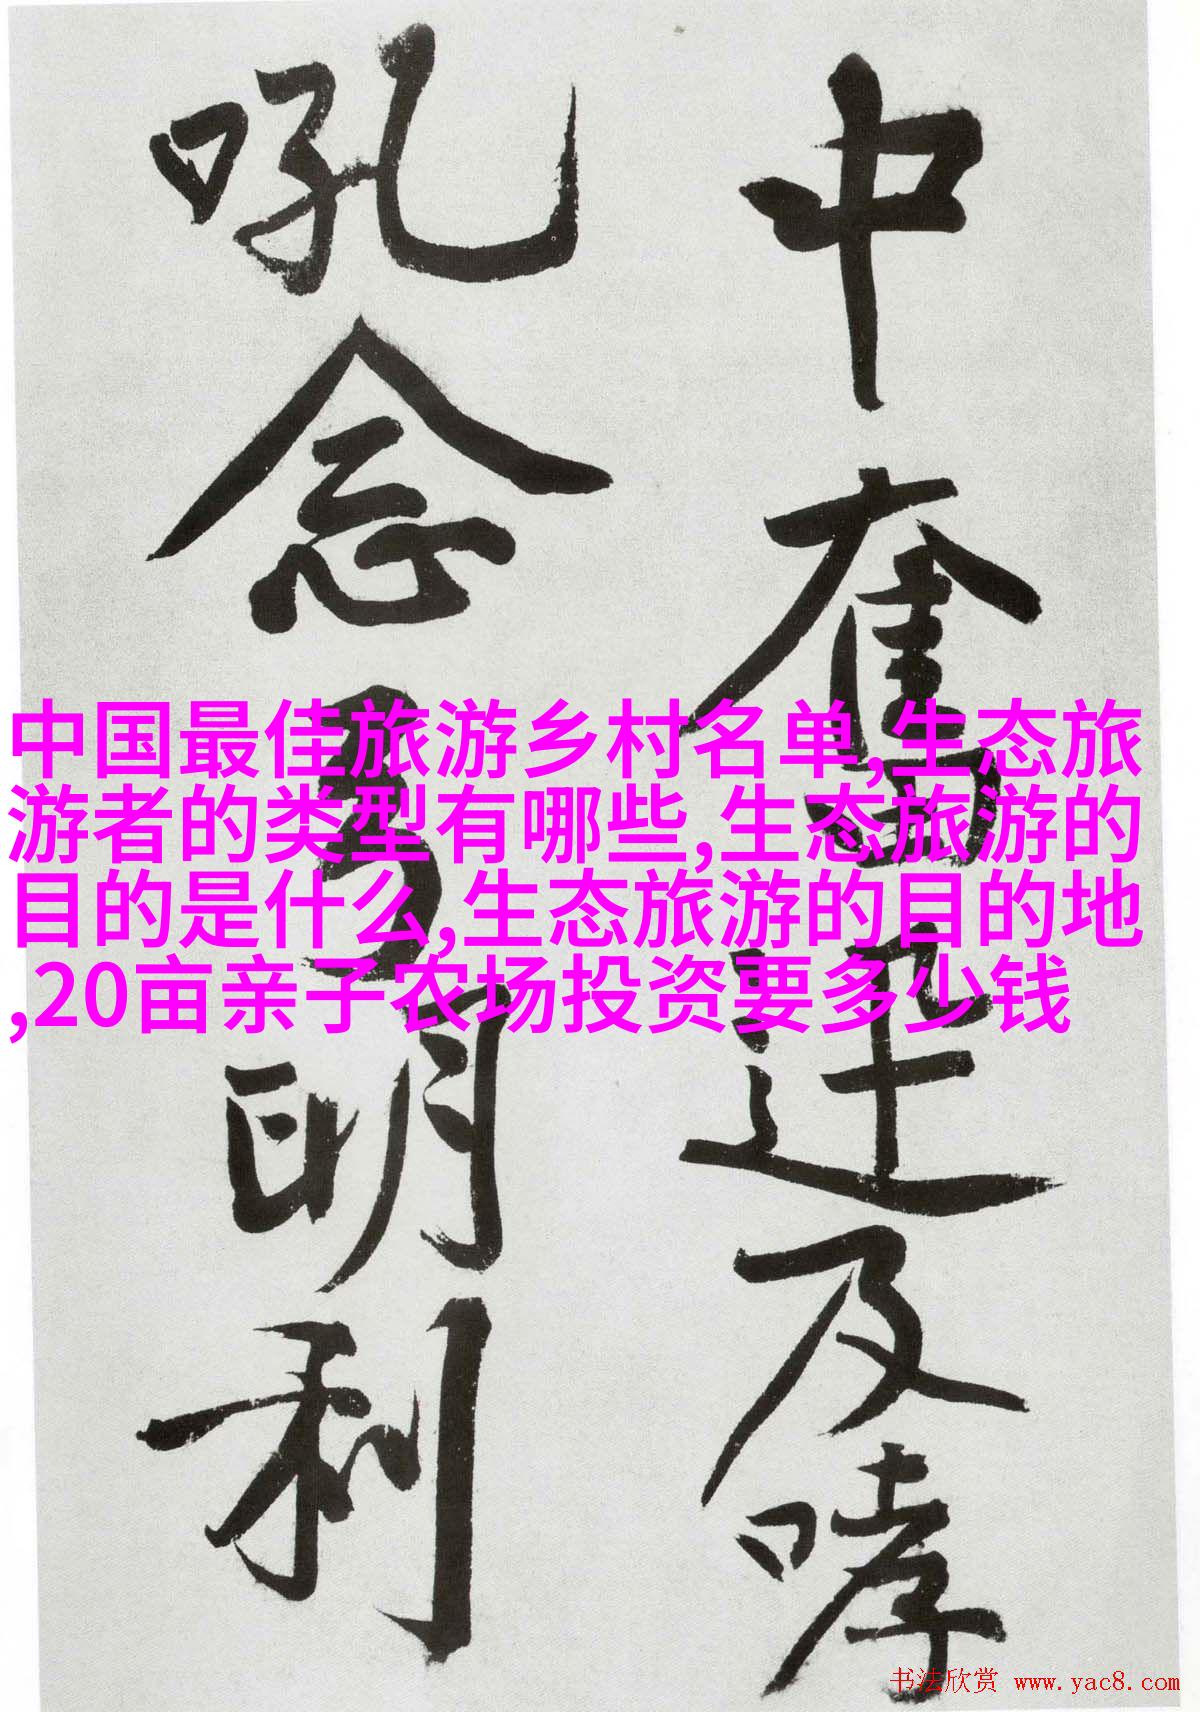 中奮迅及哮
吼念專明利
中国最佳旅游乡村名单,生态旅
游者的类型有哪些,生态旅游的
目的是什么,生态旅游的目的地
,20亩亲子农场投资要多少钱
书法欣赏 www.yac8.com